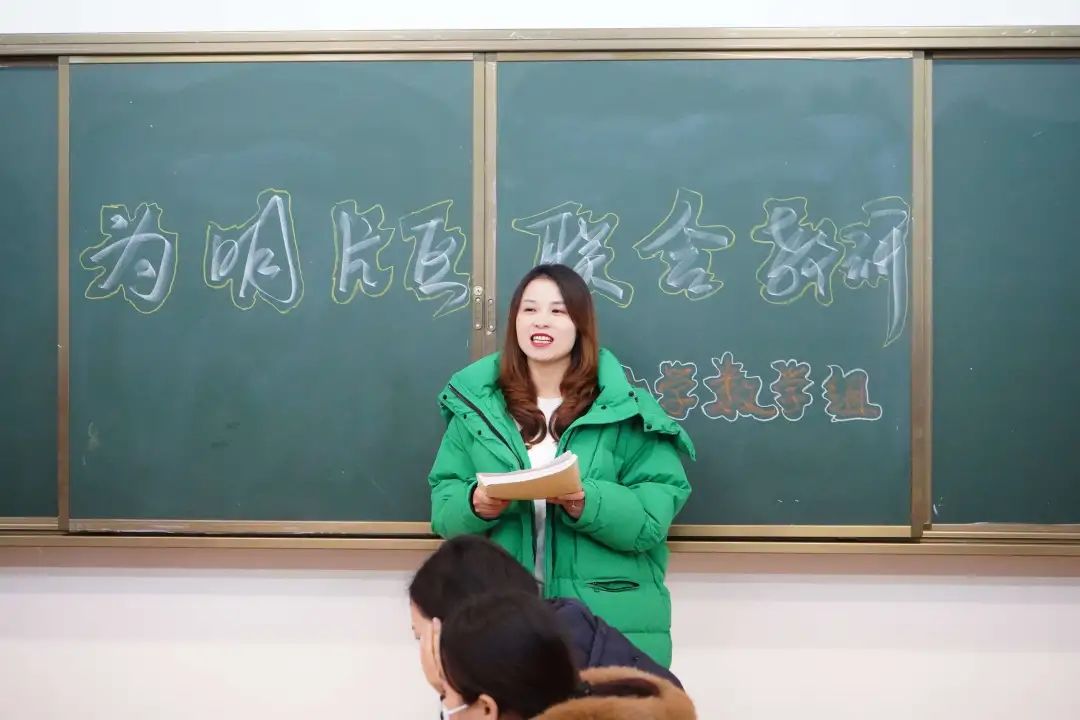 为明片区 联合教研
学数学组